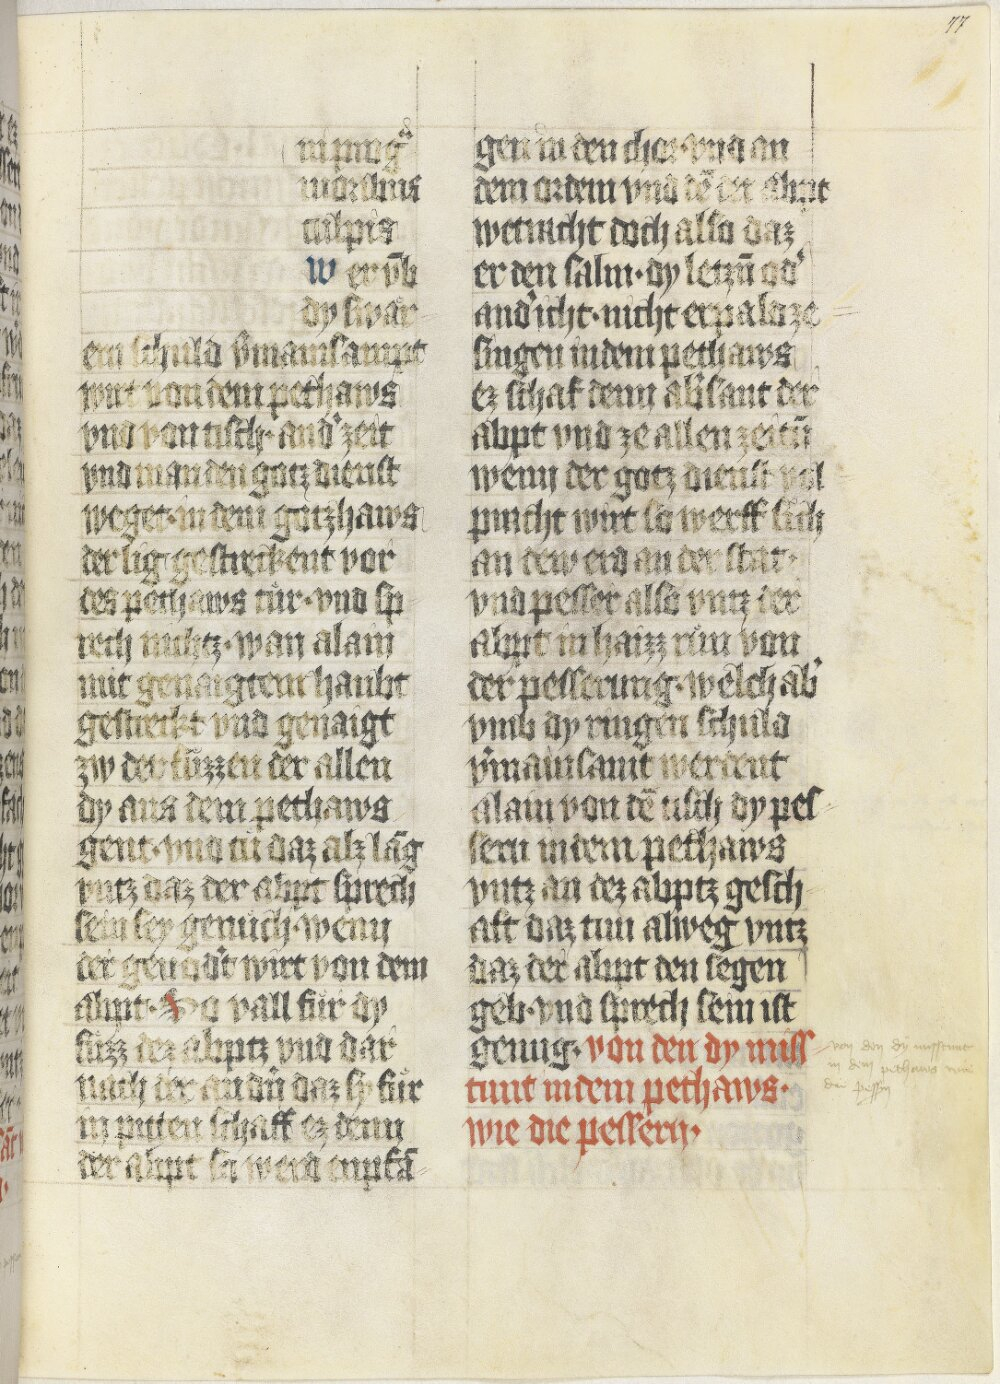 77
in pmgͣ
moribus
culpis
wer vb̄
dy swär
ern schuld v̓mainsampt
wirt von dem pethaws
vnd von tisch· and̓ zeit
vnd man den gotz dienst
weget· in dem gotzhaws
der lig gestrekent vor
des pethaws tür· vnd sp
rech nichtz· wan alain
mit genaigtem haubt
gestrekt vnd genaigt
zw der füzzen der allen
dy aus dem pethaws
gent· vnd tü daz alz lāg
vntz daz der abpt sprech
sein sey genuch· wenn
der geuod̓t wirt von dem
abpt· So vall für dy
füzz dez abptz vnd dar
nach der and̓n daz sy für
in pitten schaff ez denn
der abpt so werd enpfā
gen in den chor· vnd an
dem ordem vnd dē der abpt
weruicht doch also daz
er den salm· dy letzn̄ od̓
and̓ icht· nicht erpald ze
singen in dem pethaws
ez schaf denn ab̓ sant der
abpt vnd ze allen zeitn̄
wenn der gotz dienst vol
pracht wirt so werff sich
an dew erd an der stat·
vnd pesser also vntz der
abpt in haizz rün von
der pesserung· welch ab̓
vmb dy ringen schuld
v̓mainsamt werdent
alain von dē tisch dy pes
sern in dem pethaws
vntz an dez abptz gesch
aft daz tun alweg vntz
daz der abpt den segen
geb· vnd sprech sein ist
genug· von den dy miss
tunt in dem pethaws·
wie die pessern·
von den dy misstunt
in dem pethaws wie
die pessern